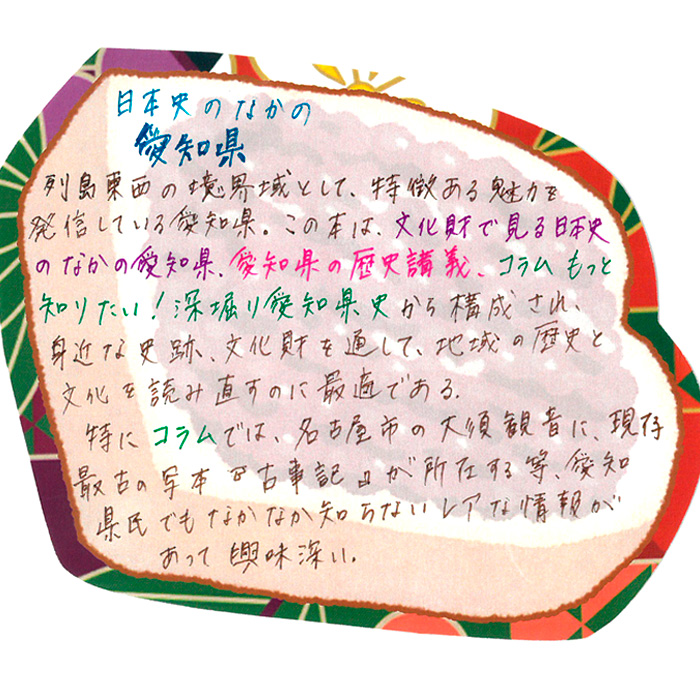 日本史のなかの
愛知県
列島東西の境界域として、特徴ある魅力を
発信している愛知県。この本は、文化財で見る日本史
のなかの愛知県、愛知県の歴史講義、コラムもっと
知りたい！深堀り愛知県史から構成され、
身近な史跡、文化財を通して、地域の歴史と
文化を読み直すのに最適である。
特にコラムでは、名古屋市の大須観音に、現存
最古の写本『古事記』が所在する等、愛知
県民でもなかなか知らないレアな情報が
あって興味深い。